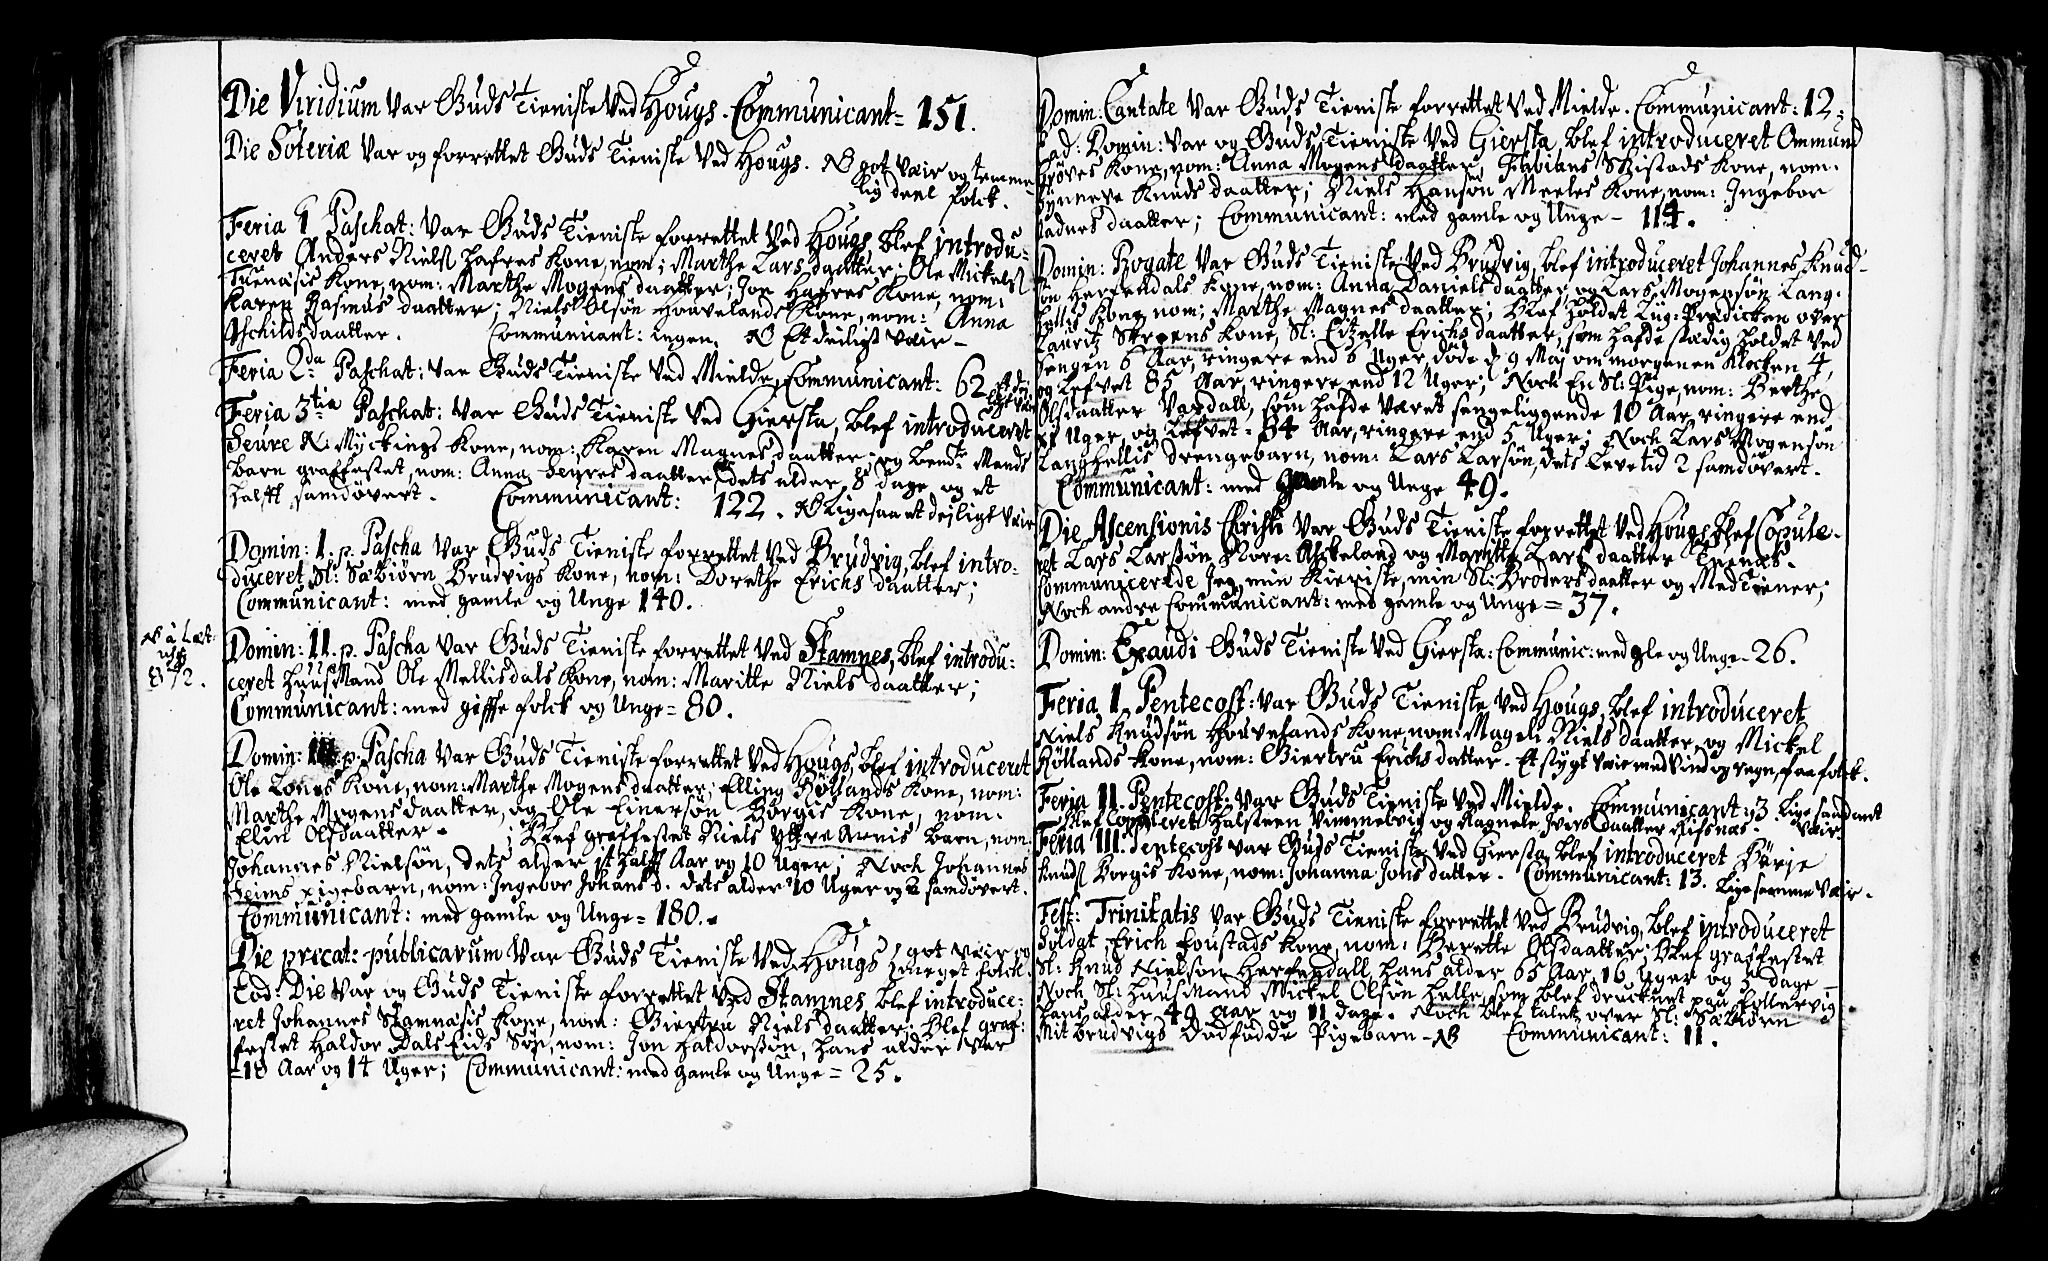 Die Viridium var Guds Tieniste ved Hougs. Communicant = 151.
Die Soteriæ var og forrettet Guds Tieniste ved Hougs. NB got Vair og temme-
lig deel folck.
Feria 1 Paschat: var Guds Tieniste forrettet ved Hougs, blef introdu-
ceret Anders Niels: Hafres Kone, nom: Marthe Lars daatter; Ole Mickels:
Tuenæsis Kone, nom: Marthe Mogens daatter; Jon Hafres Kone, nom:
Karen Rasmus daatter; Niels Olsøn Houvelands Kone, nom: Anna
Aschilds daatter. Communicant: ingen. NB Et deiligt Vair -
Feria 2da Paschat: var Guds Tieniste ved Mielde, Communicant: 62
Feria 3tia Paschat: var Guds Tieniste ved Giersta, blef introduceret
Seure N: Myckings Kone, nom: Karen Magnes daatter; og bendte Mends
barn graffestet, nom: Anna Seyres daatter, dets alder 8 dage og et
halft samdøvert. Communicant: 122. NB Ligesaa et dejligt Vair
Domin: 1. p. Pascha var Guds Tieniste forrettet ved Brudvig, blef intro-
duceret Sl: Sæbiørn Brudvigs Kone, nom: Dorethe Erichs daatter;
Communicant: med gamle og Unge 140.
Domin: II. p. Pascha var Guds Tieniste forrettet ved Stamnes, blef introdu-
ceret huusMand Ole Mellisdals Kone, nom: Maritte Niels daatter;
Communicant: med giffte folck og Unge = 80.
Domin: III. p. Pascha var Guds Tieniste forrettet ved Hougs, blef introduceret
Ole Lones Kone, nom: Marthe Mogens daatter; Elling Røllands Kone, nom:
Marthe Mogens daatter, og Ole Einersøn Borgis Kone, nom:
Eliri Olsdaatter. ; Blef graffestet Niels Yttre Arnis barn, nom:
Johannes Nielsøn, dets alder 1 halft Aar og 10 Uger; Noch Johannes
Seims pigebarn, nom: Ingebor Johans d. dets alder 10 Uger og 2 samdøvert.
Communicant: med gamle og Unge = 180.
Die precat: publicarum var Guds Tieniste ved Hougs, got Vair og
meget folck.
Eod: Die var og Guds Tieniste forrettet ved Stamnes, blef introduce-
ret Johannes Stamnæsis Kone, nom: Giertru Niels daatter; blef graf-
festet Haldor Dals Eids Søn, nom: Jon Haldorssøn, hans alder var
18 Aar og 14 Uger; Communicant: med gamle og Unge = 25.
872.
Domin: Cantate var Guds Tieniste forrettet ved Mielde. Communicant: 12:
Ead: Domin: var og Guds Tieniste ved Giersta, blef introduceret Ommund
Kone, nom: Anna Mogens daatter, Fabians Kone, nom:
Synneve Knuds daatter; Niels Hansøn Meeles Kone, nom: Ingebor
daatter; Communicant: med gamle og Unge - 114.
Domin: Rogate var Guds Tieniste ved Brudvig, blef introduceret Johannes Knud-
søn Herfendals Kone, nom: Anna Daniels daatter, og Lars Mogensøn Lang-
hellis Kone, nom: Marthe Magnes daatter; Blef holdet Liig-Predicken over
Lauritz Skreens Kone, Sl: Citzelle Erichs daatter, som hafde stædig holdet ved
Sengen 6 Aar, ringere end 6 Uger, døde d 9 Maj om morgenen Klocken 4,
og Lefvet 85 Aar, ringere end 12 Uger; Noch En Sl: Pige, nom: Berthe
Olsdaatter Vardall, som hafde været sengeliggende 10 Aar, ringere end
Uger, og Lefvet = 34 Aar, ringere end 5 Uger; Noch Lars Mogensøn
Langhellis drengebarn, nom: Lars Larsøn, dets Levetid 2 samdøvert.
Communicant: med Gamle og Unge 49.
Die Ascensionis Christi var Guds Tieniste forrettet ved Hougs, blef Copule-
ret Lars Larssøn Nore Askeland og Maritte Lars daatter Tuenæs.
Communicerede Jeg, min Kieriste, min Sl: Broders daatter og Med Tiener;
Noch andre Communicant: med gamle og Unge = 37.
Domin: Exaudi Guds Tieniste ved Giersta: Communic: med gle og Unge - 26.
Feria 1. Pentecost: var Guds Tieniste ved Hougs, blef introduceret
Niels Knudsøn Houvelands Kone, nom: Mageli Niels daatter, og Mickel
Røllands Kone, nom: Giertru Erichs datter. Et stygt veir med Vind og regn, faa folck.
Feria II. Pentecost: var Guds Tieniste ved Mielde. Communicant: 3. Lige saadant
Blef Copuleret Halsteen Vimmelvig og Ragnele Ivers daatter Rifsnæs. Vair.
Feria III. Pentecost var Guds Tieniste ved Giersta, blef introduceret Børje
Knuds: Borgis Kone, nom: Johanna Johs datter. Communicant: 13. Lige samme Vair.
Fest: Trinitatis var Guds Tieniste forrettet ved Brudvig, blef introduceret
Soldat: Erich Foustads Kone, nom: Berette Olsdaatter; blef graffestet
Sl: Knud Nielsøn Herfendall, hans alder 65 Aar, 16 Uger og 5 dage -
Noch Sl: huusMand Mickel Olsøn Helle, som blef drucknet paa Follervig
hans alder 49 Aar og 11 dage. Noch blef talet over Sl: Sæbiørn
Mit brudvigs Dødfødde Pigebarn - NB Communicant: 11.